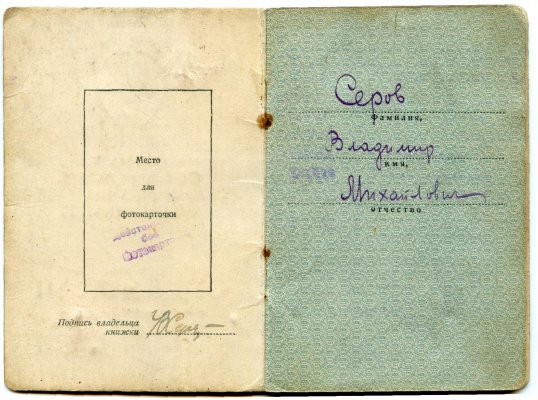 Место
для
фотокарточки
Действ
без
Фотокарт
Подпись владельца
книжки
Серов
фамилия,
Владимир
имя,
Михайлович
отчество